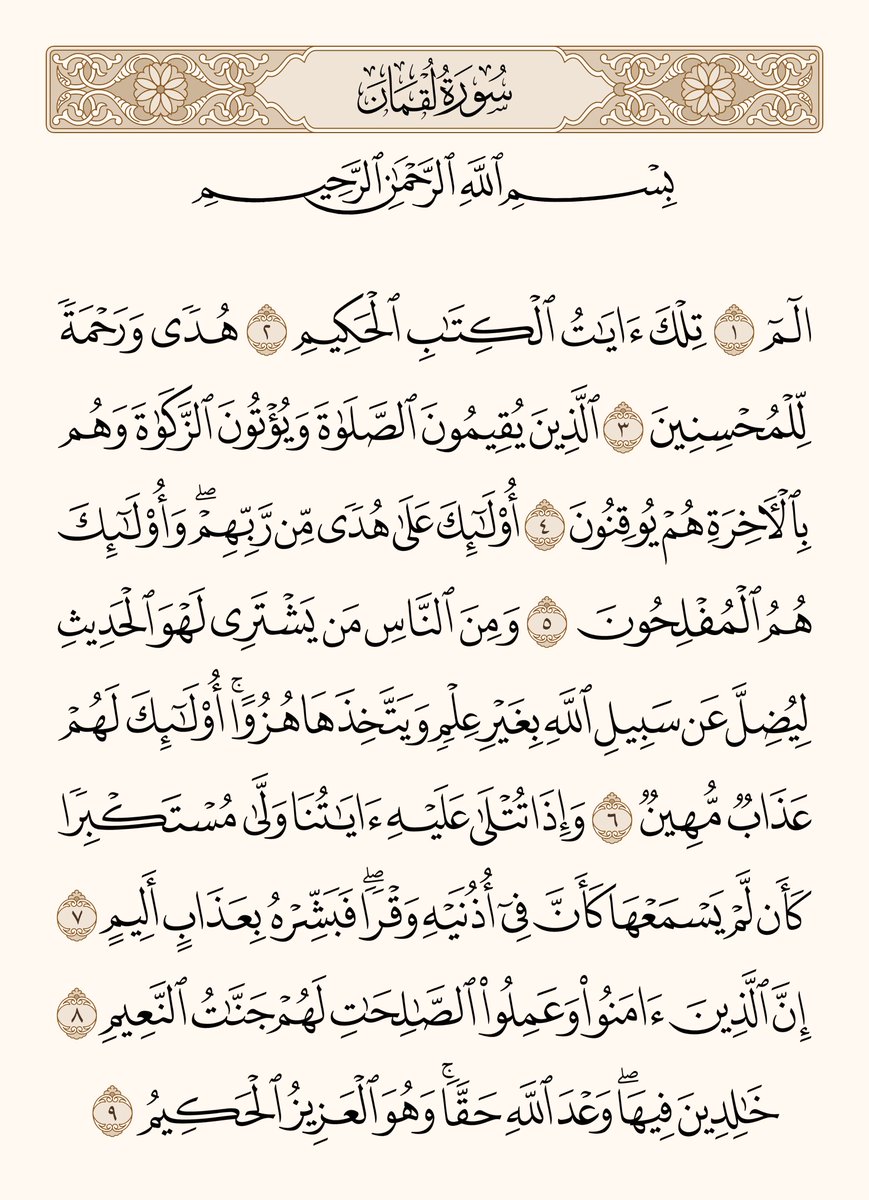 سُورَةُ لُقْمَان
بِسْمِ ٱللَّهِ ٱلرَّحْمَٰنِ ٱلرَّحِيمِ
الٓمٓ ١ تِلْكَ ءَايَٰتُ ٱلْكِتَٰبِ ٱلْحَكِيمِ ٢ هُدًى وَرَحْمَةً
لِّلْمُحْسِنِينَ ٣ ٱلَّذِينَ يُقِيمُونَ ٱلصَّلَوٰةَ وَيُؤْتُونَ ٱلزَّكَوٰةَ وَهُم
بِٱلْأَخِرَةِ هُمْ يُوقِنُونَ ٤ أُو۟لَٰٓئِكَ عَلَىٰ هُدًى مِّن رَّبِّهِمْ ۖ وَأُو۟لَٰٓئِكَ
هُمُ ٱلْمُفْلِحُونَ ٥ وَمِنَ ٱلنَّاسِ مَن يَشْتَرِى لَهْوَ ٱلْحَدِيثِ
لِيُضِلَّ عَن سَبِيلِ ٱللَّهِ بِغَيْرِ عِلْمٍ وَيَتَّخِذَهَا هُزُوًا ۚ أُو۟لَٰٓئِكَ لَهُمْ
عَذَابٌ مُّهِينٌ ٦ وَإِذَا تُتْلَىٰ عَلَيْهِ ءَايَٰتُنَا وَلَّىٰ مُسْتَكْبِرًا
كَأَن لَّمْ يَسْمَعْهَا كَأَنَّ فِىٓ أُذُنَيْهِ وَقْرًا ۖ فَبَشِّرْهُ بِعَذَابٍ أَلِيمٍ ٧
إِنَّ ٱلَّذِينَ ءَامَنُوا۟ وَعَمِلُوا۟ ٱلصَّٰلِحَٰتِ لَهُمْ جَنَّٰتُ ٱلنَّعِيمِ ٨
خَٰلِدِينَ فِيهَا ۖ وَعْدَ ٱللَّهِ حَقًّا ۚ وَهُوَ ٱلْعَزِيزُ ٱلْحَكِيمُ ٩